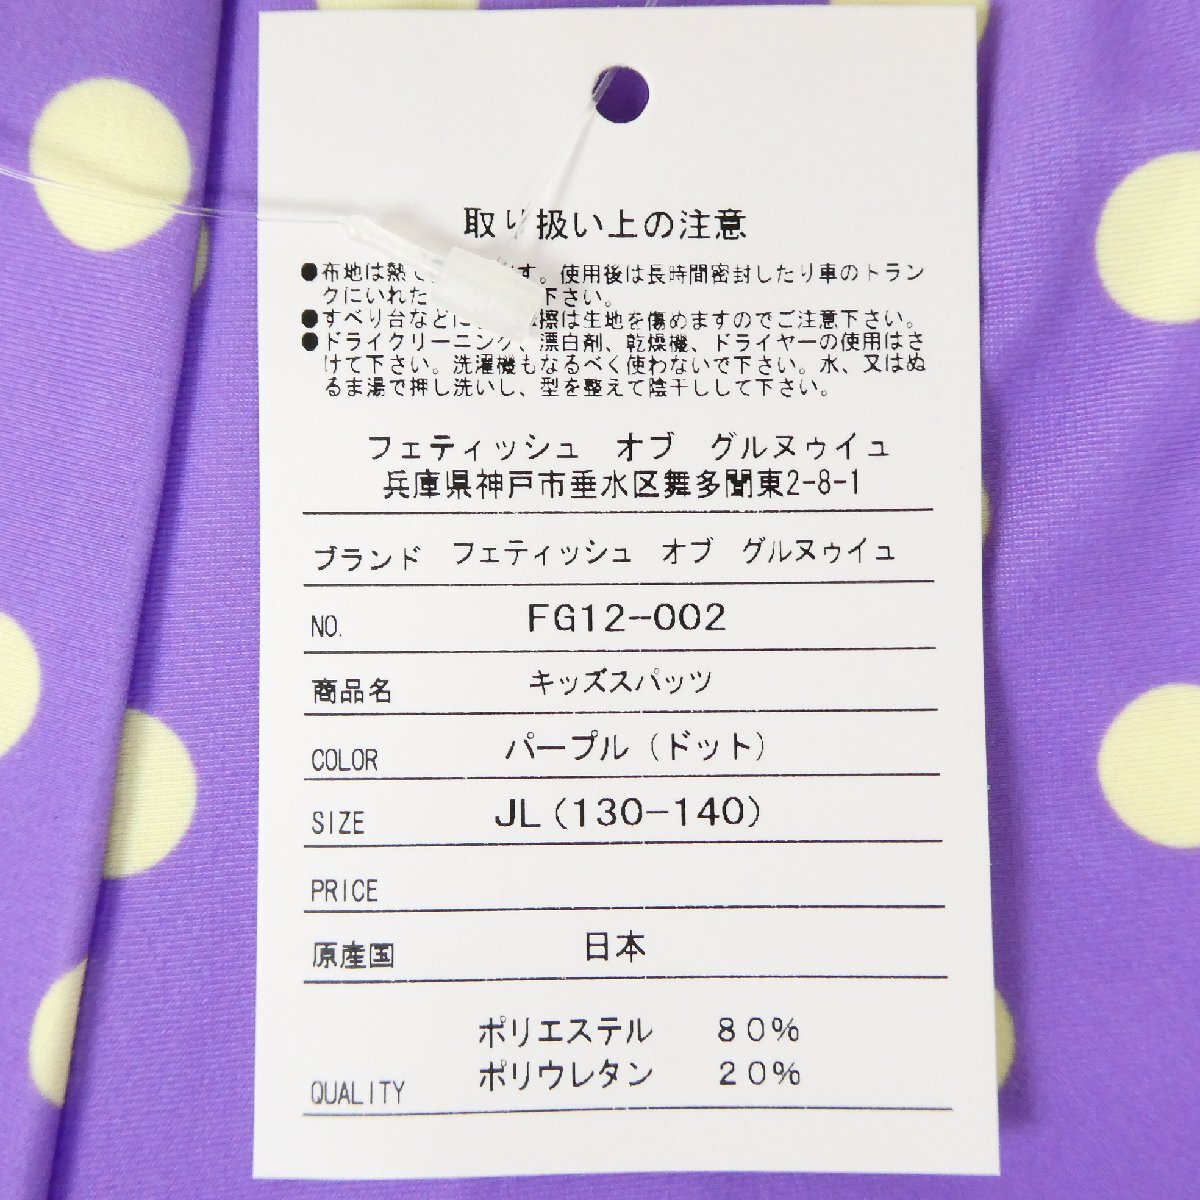 取り扱い上の注意
●布地は熱で す。使用後は長時間密封したり車のトラン
クにいれた 下さい。
●すべり台などに 擦は生地を傷めますのでご注意下さい。
●ドライクリーニング、漂白剤、乾燥機、ドライヤーの使用はさ
けて下さい。洗濯機もなるべく使わないで下さい。水、又はぬ
るま湯で押し洗いし、型を整えて陰干しして下さい。
フェティッシュ オブ グルヌゥイユ
兵庫県神戸市垂水区舞多聞東2-8-1
ブランド フェティッシュ オブ グルヌゥイユ
NO. FG12-002
商品名 キッズスパッツ
COLOR パープル(ドット)
SIZE JL(130-140)
PRICE
原産国 日本
ポリエステル 80%
ポリウレタン 20%
QUALITY